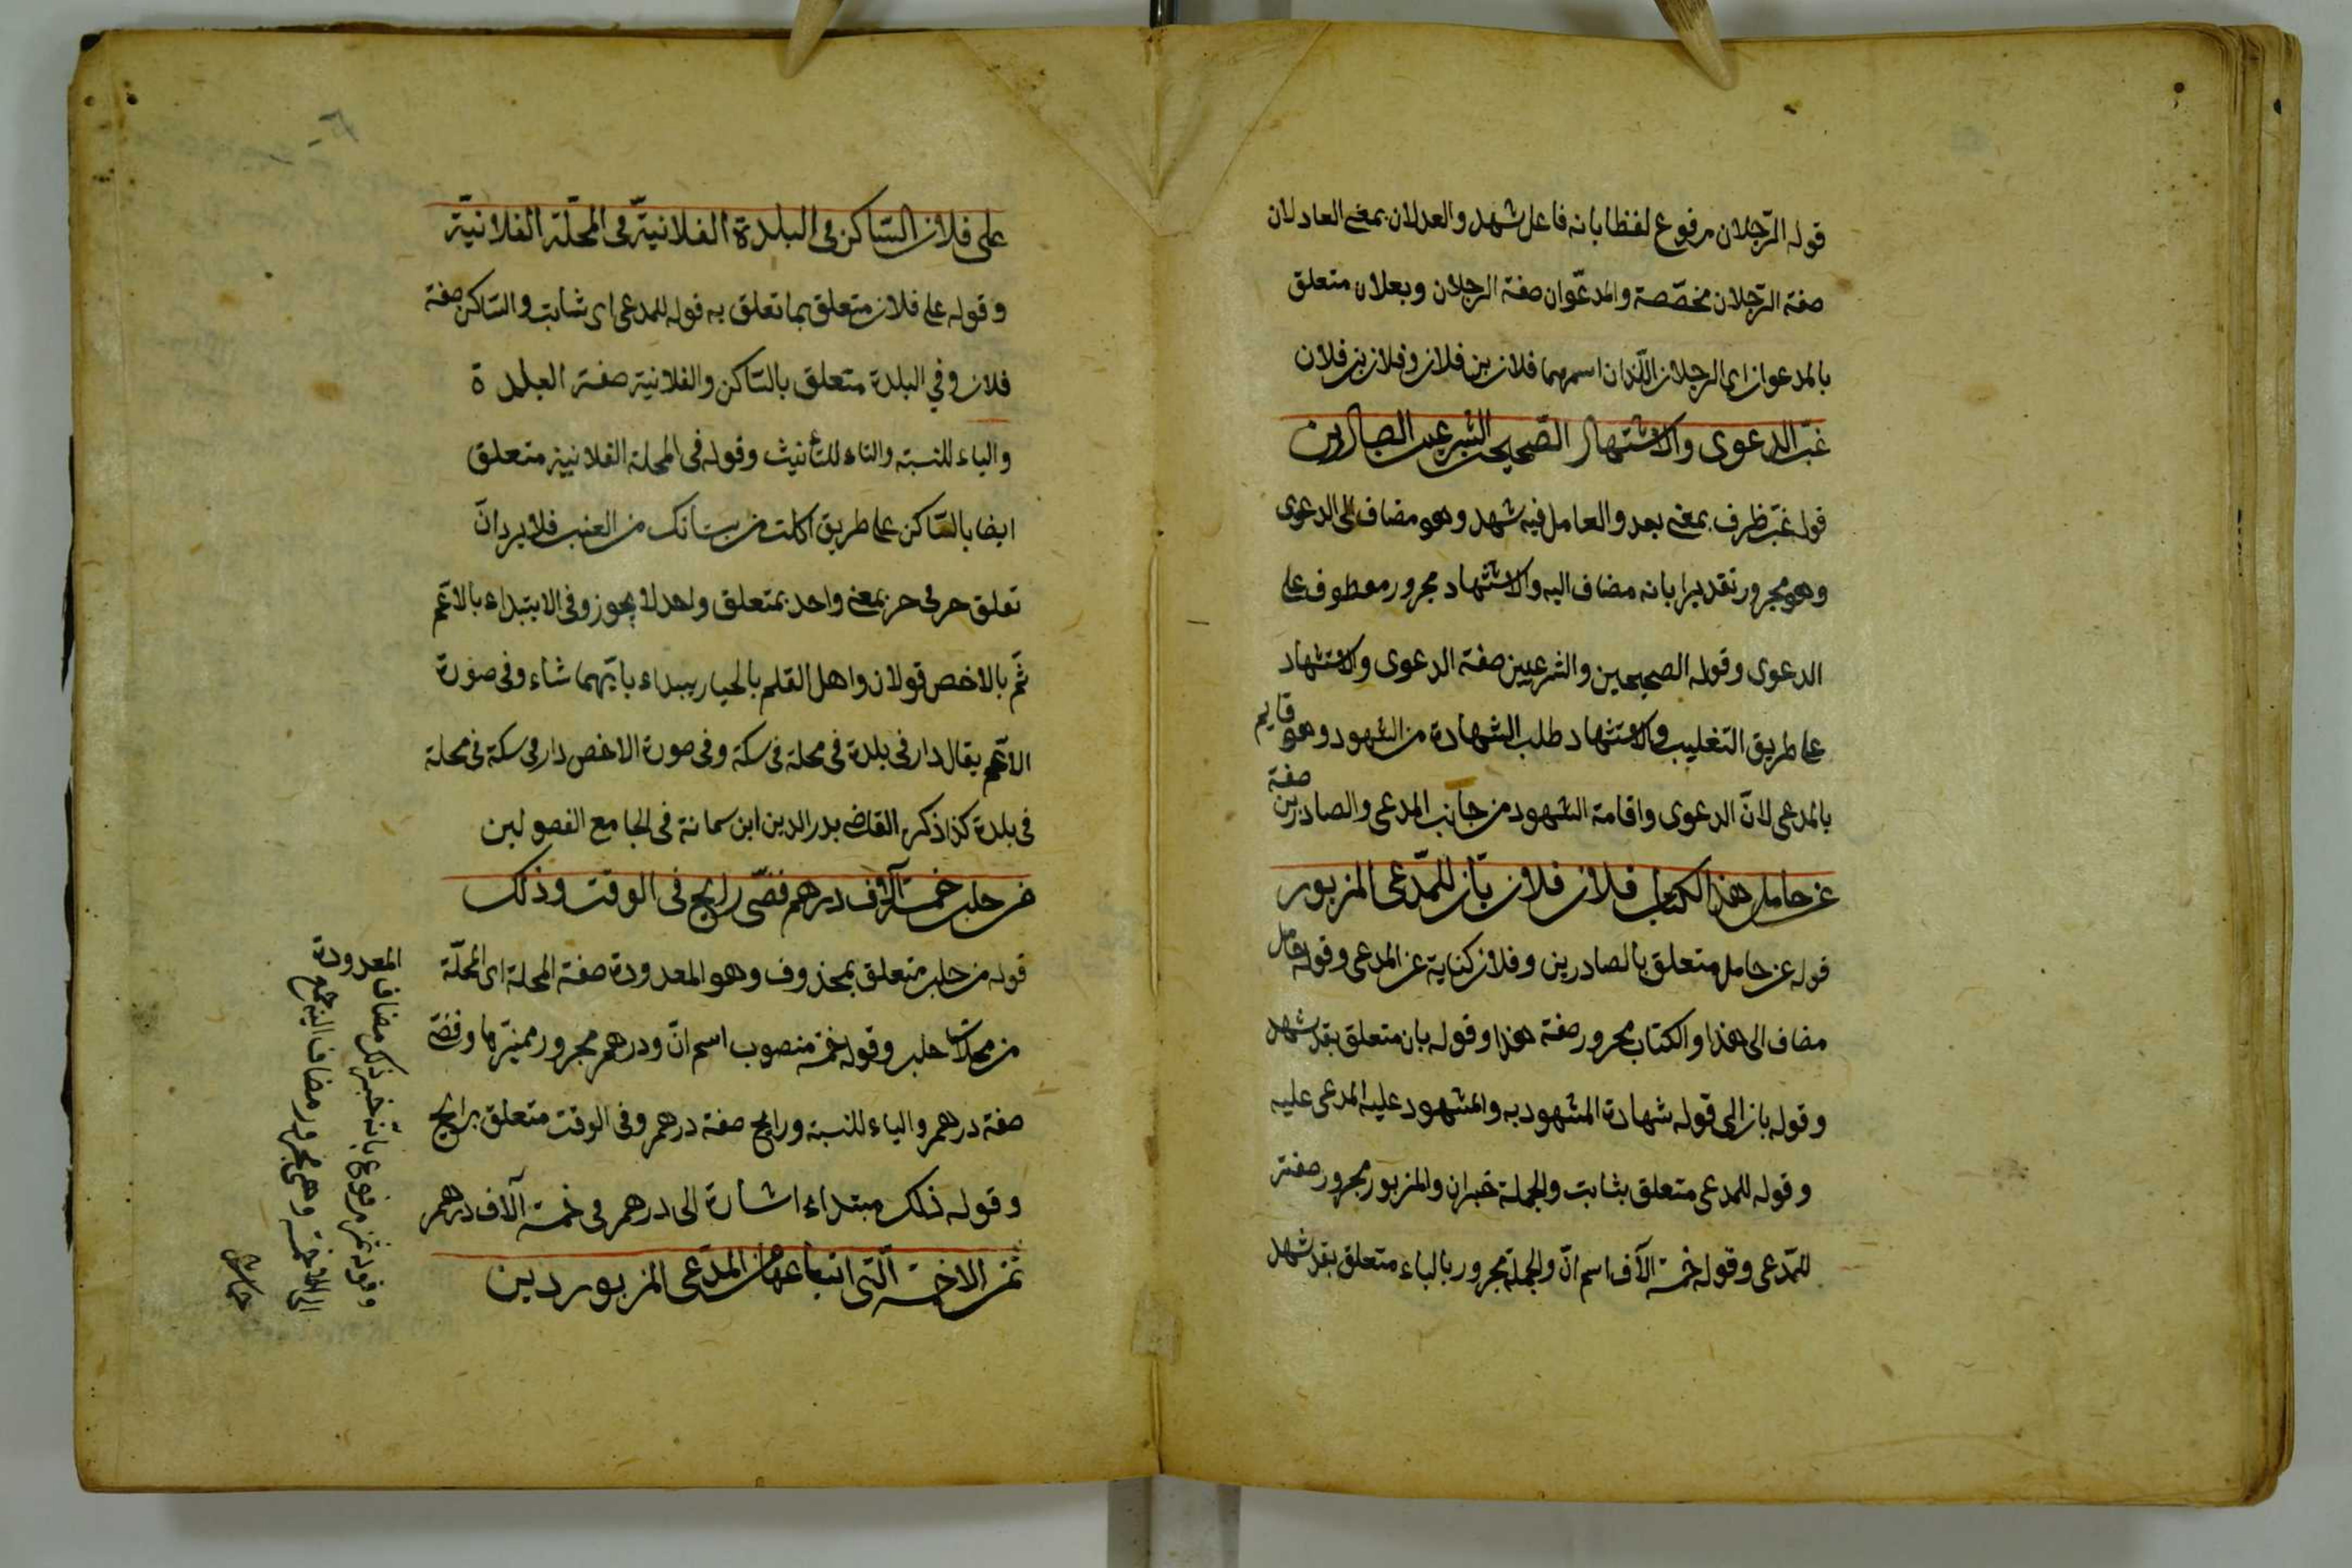 قوله الرّجلان مرفوع لفظا بانه فاعل شهد والعدلان بمعنى العادلان
صفة الرّجلان مخصّصة والمدعّوان صفة الرجلان وبعلان متعلق
بالمدعوان اى الرجلان اللّذان اسمهما فلان بن فلان وفلان بن فلان
غبّ الدعوى والاستشهاد الصّحيحين الشرعيين الصادرين
قوله غبّ ظرف بمعنى بعد والعامل فيه شهد وهو مضاف الى الدعوى
وهو مجرور تقديرا بانه مضاف اليه والاستشهاد مجرور معطوف على
الدعوى وقوله الصحيحين والشرعيين صفة الدعوى والاستشهاد
على طريق التغليب والاستشهاد طلب الشهادة من الشهود وهو قايم
بالمدعى لانّ الدعوى واقامة الشهود من جانب المدعى والصادرين صفة
عن حامل هذا الكتاب فلان فلان بّان للمّدعى المزبور
قوله عن حامل متعلق بالصادرين وفلان كناية عن المدعى وقوله حامل
مضاف الى هذا والكتاب مجرور صفة هذا وقوله بان متعلق بقد شهد
وقوله بان الى قوله شهادة المشهود به والمشهود عليه المدعى عليه
وقوله للمدعى متعلق بثابت والجملة خبر ان والمزبور مجرور صفة
للمّدعى وقوله خمسة آلاف اسم انّ والجملة مجرور بالباء متعلق بقد شهد
على فلان السّاكن فى البلدة الفلانيّة فى المحلّة الفلانيّة
وقوله على فلان متعلق بما تعلق به قوله للمدعى اى ثابت والسّاكن صفة
فلان وفي البلدة متعلق بالسّاكن والفلانية صفة البلدة
والياء للنسبة والتاء للتأنيث وقوله فى المحلة الفلانية متعلق
ايضا بالسّاكن على طريق اكلت من بستانك من العنب فلا يرد انّ
تعلق حرفى جر بمعنى واحد بمتعلق واحد لا يجوز وفى الابتداء بالاعّم
ثمّ بالاخص قولان واهل القلم بالخيار يبداء بايّهما شاء وفى صورة
الاعّم يقال دار فى بلدة فى محلة فى سكة وفى صورة الاخص دار فى سكة فى محلة
فى بلدة كذا ذكره القاضى بدر الدين ابن سمانة فى الجامع الفصولين
من حلب خمسة آلاف درهم فضّى رايج فى الوقت وذلك
قوله من حلب متعلق بمحذوف وهو المعدودة صفة المحلة اى المحلّة
من محلات حلب وقوله خمسة منصوب اسم انّ ودرهم مجرور مميّزها وفضّة
صفة درهم والياء للنسبة ورايج صفة درهم وفى الوقت متعلق برايج
وقوله ذلك مبتداء اشارة الى درهم فى خمسة آلاف درهم
ثمن الاخسة الّتى ابتاعها من المدّعى المزبور دين
المعدودة
وقوله ثمن مرفوع بانّه خبر ذلك مضاف
الى الاخسة وهى مجرور مضاف اليه جمع